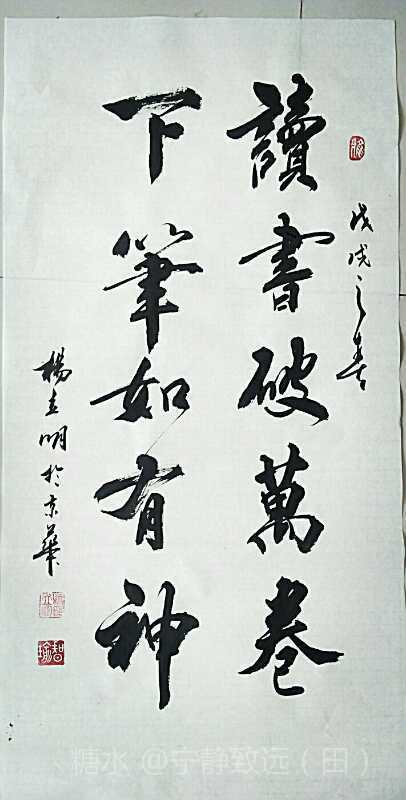 戊戌之春
讀書破萬卷
下筆如有神
楊立明於京華
智瑜
糖水 @宁静致远（田）